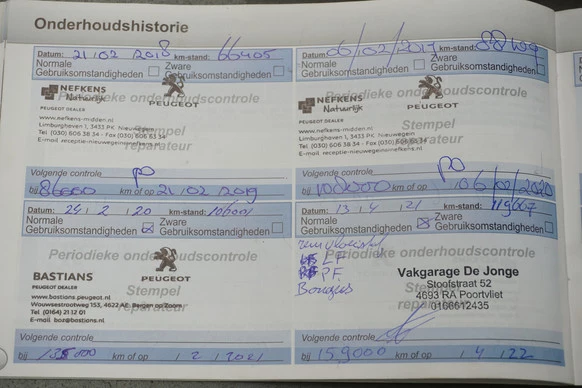 Onderhoudshistorie
Datum: 21/02/2018 km-stand: 66405
Normale Gebruiksomstandigheden
Zware Gebruiksomstandigheden
Periodieke onderhoudscontrole
NEFKENS
Natuurlijk
PEUGEOT DEALER
PEUGEOT
www.nefkens-midden.nl
Limburghaven 1, 3433 PK Nieuwegein
Tel (030) 606 38 34 - Fax (030) 606 63 34
E-mail receptie-nieuwegein@nefkens.nl
Stempel reparateur
Volgende controle
bij 86000 km of op 21/02/2019
Datum: 06/02/2019 km-stand:
Normale Gebruiksomstandigheden
Zware Gebruiksomstandigheden
Periodieke onderhoudscontrole
NEFKENS
Natuurlijk
PEUGEOT DEALER
PEUGEOT
www.nefkens-midden.nl
Limburghaven 1, 3433 PK Nieuwegein
Tel (030) 606 38 34 - Fax (030) 606 63 34
E-mail receptie-nieuwegein@nefkens.nl
Stempel reparateur
Volgende controle
bij km of op 06/02/2020
Datum: 24/2/20 km-stand:
Normale Gebruiksomstandigheden
Zware Gebruiksomstandigheden
Periodieke onderhoudscontrole
BASTIANS
PEUGEOT DEALER
PEUGEOT
www.bastians.peugeot.nl
Wouwsestrootweg 153, 4622 AE Bergen op Zoom
Tel (0164) 21 12 01
E-mail boz@bastians.nl
Stempel reparateur
Volgende controle
bij km of op /2/2021
Datum: 13/4/21 km-stand: 119667
Normale Gebruiksomstandigheden
Zware Gebruiksomstandigheden
Periodieke onderhoudscontrole
LF
PF
Bougies
Vakgarage De Jonge
Stoofstraat 52
4693 RA Poortvliet
0166612435
Stempel reparateur
Volgende controle
bij 159000 km of op /4/22